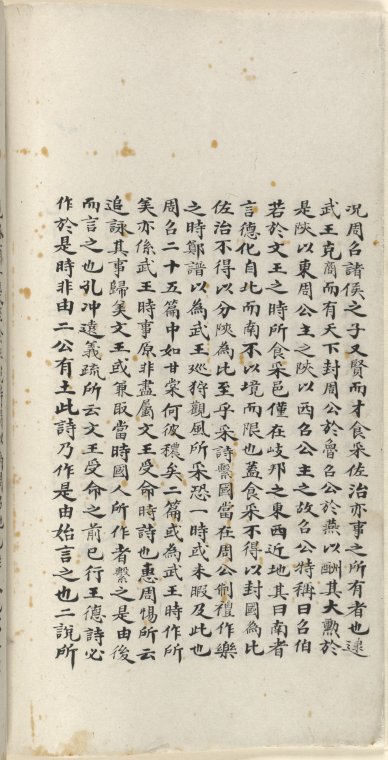 況周召諸侯之子又賢而才食采佐治亦事之所有者也逮
武王克商而有天下封周公於魯召公於燕以酬其大勳於
是陝以東周公主之陝以西召公主之故召公特稱曰召伯
若於文王之時所食采邑僅在岐邦之東西近地其曰南者
言德化自北而南不以境而限也蓋食采不得以封國為比
佐治不得以分陝為比至乎采詩繫國當在周公制禮作樂
之時鄭譜以為武王廵狩觀風所采恐一時或未暇及此也
周召二十五篇中如甘棠何彼穠矣二篇或為武王時作所
美亦係武王時事原非盡屬文王受命時詩也惠周惕所云
追詠其事歸美文王或兼取當時國人所作者繫之是由後
而言之也孔冲遠義疏所云文王受命之前已行王德詩必
作於是時非由二公有土此詩乃作是由始言之也二說所